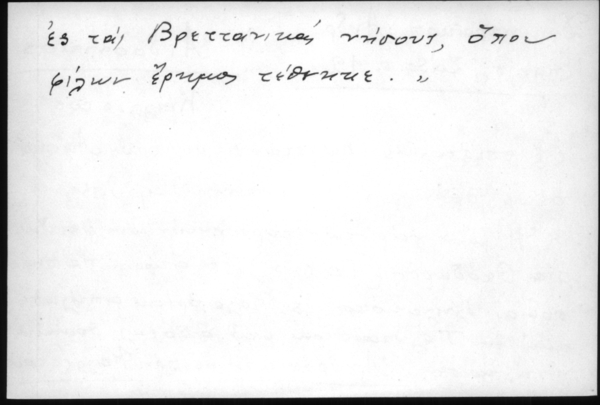 ἐς τὰς Βρεττανικὰς νήσους, ὅπου
φίλων ἔρημος τέθνηκε. "